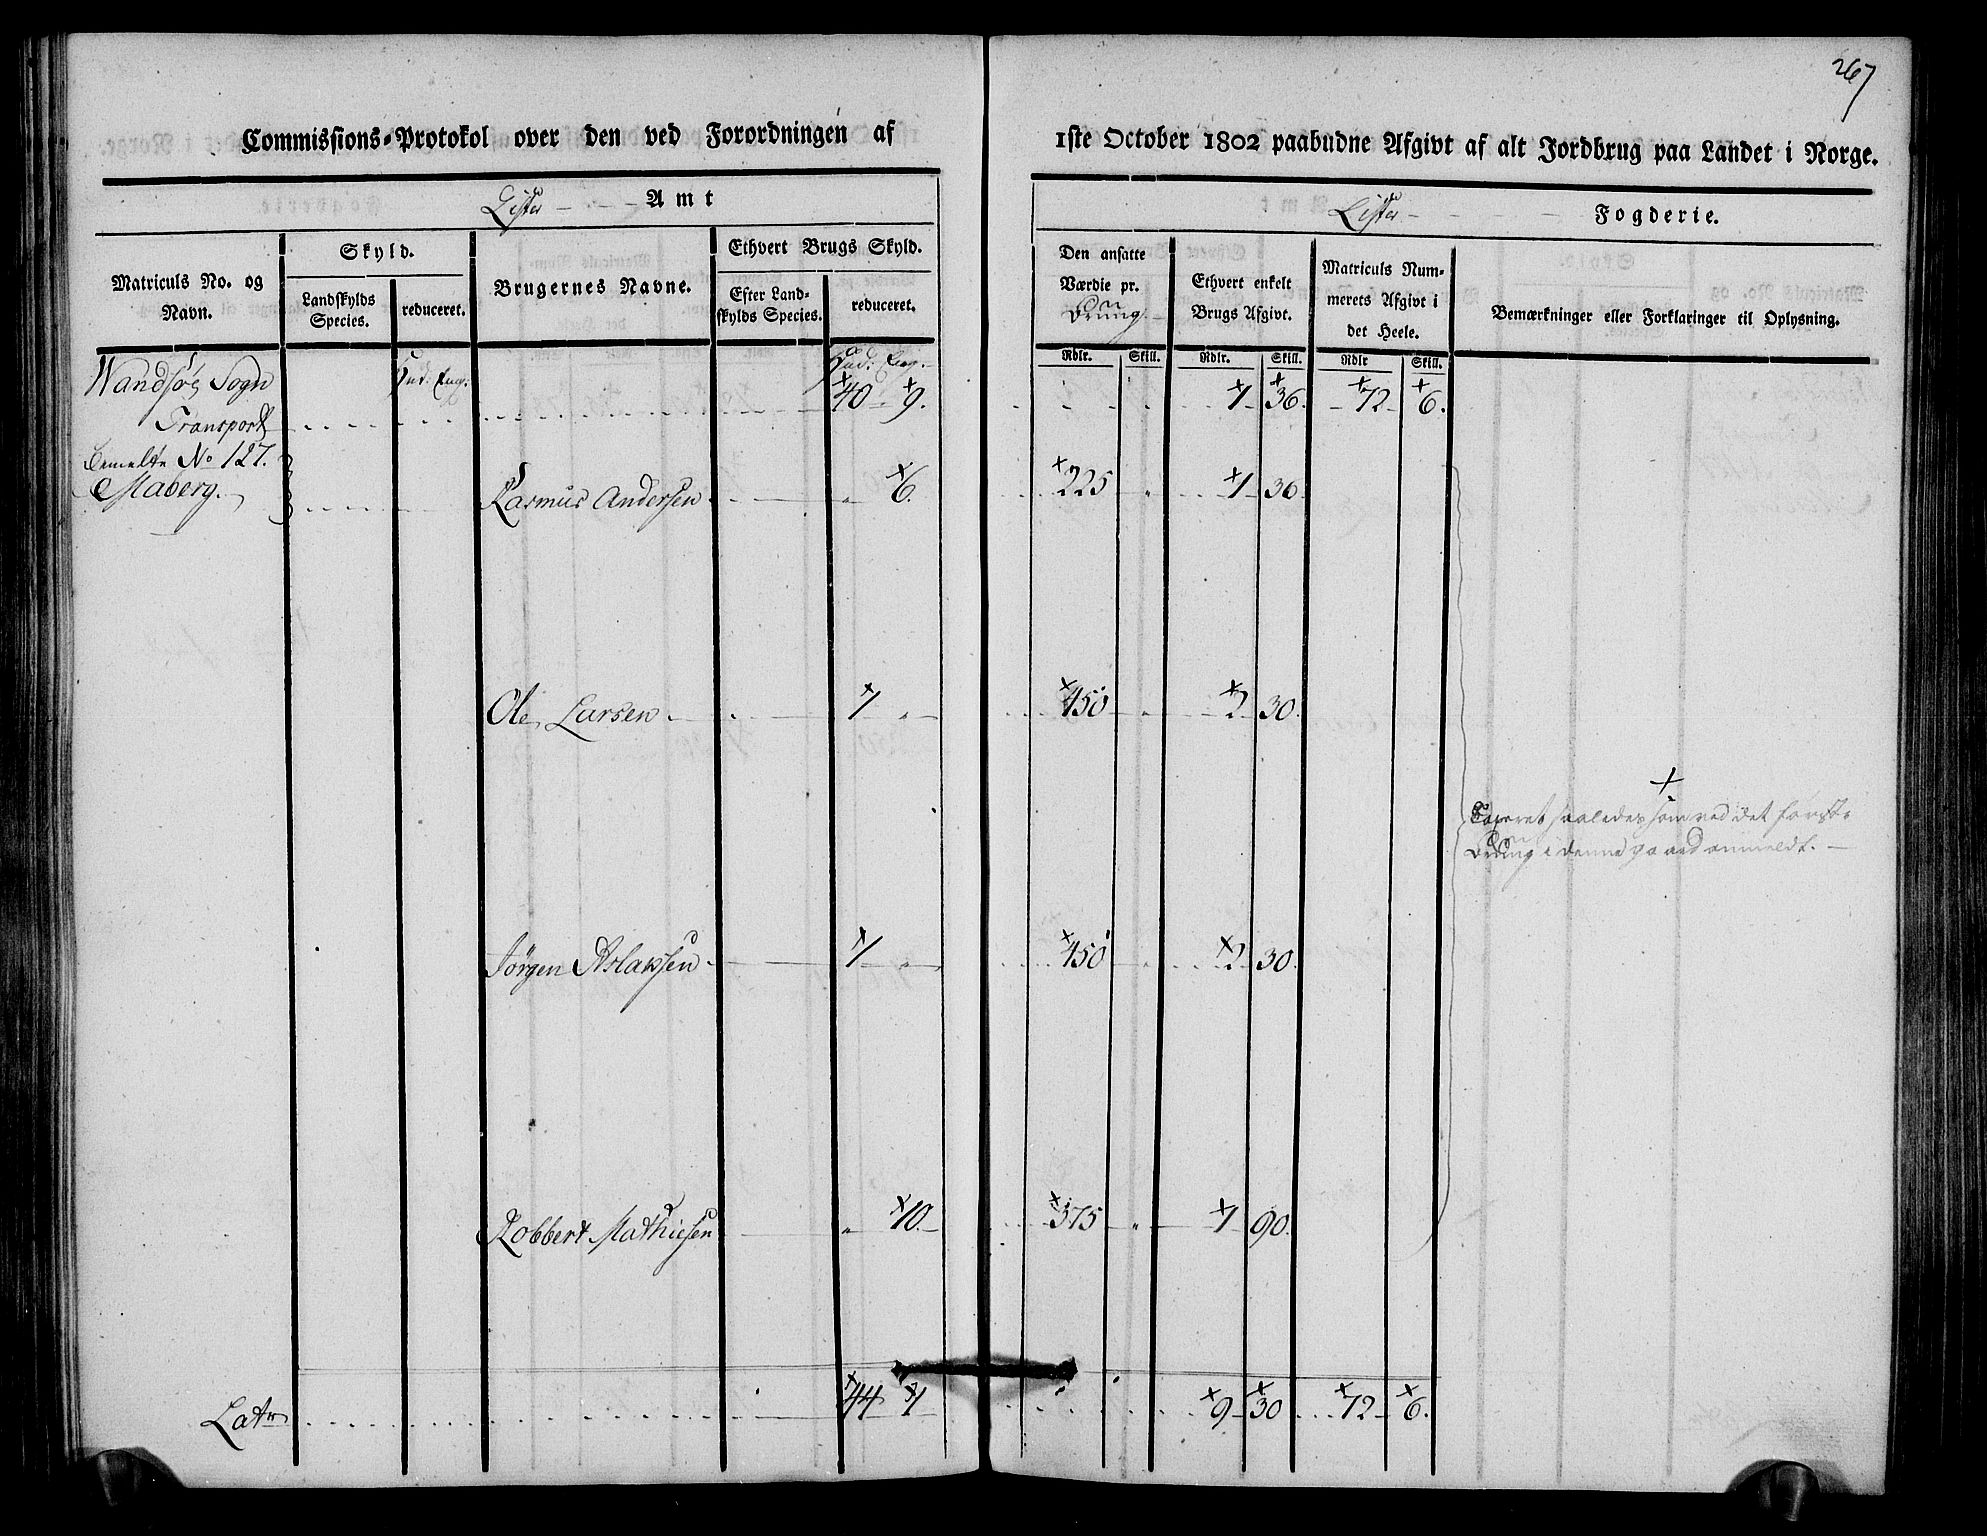 267
Commissions-Protokol over den ved Forordningen af 1ste October 1802 paabudne Afgivt af alt Jordbrug paa Landet i Norge.
Lister Amt
Lister Fogderie.
Matriculs No. og Navn.
Skyld.
Landskylds Species.
reduceret.
Brugernes Navne.
Ethvert Brugs Skyld.
Efter Landskylds Species.
reduceret.
Den ansatte Værdie pr. Brug.
Ethvert enkelt Brugs Afgivt.
Matriculs Nummerets Afgivt i det Heele.
Bemærkninger eller Forklaringer til Oplysning.
Rdlr. Skill. Rdlr. Skill. Rdlr Skill.
Wandsøe Sogn
Transport 40 9. 1 36. 72 6.
bemelte No 127.
Maberg. Rasmus Andersen 6. 225 1 30.
Ole Larsen 1 450 2 30.
+
Taxeret saaledes som ved det første
Brug i denne gaard anmeldt.
Jørgen Aslaksen 1 450 2 30.
Robbert Mathiesen 10. 375 1 90.
Latr 44 1 9 30 72 6.